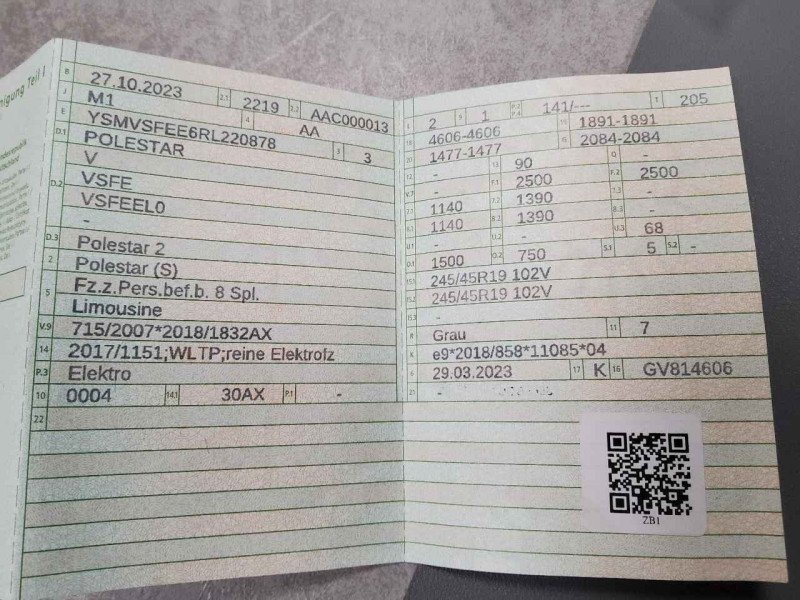 nigung Teil I
B 27.10.2023 2.1 2219 2.2 AAC000013
J M1 4 AA
E YSMVSFEE6RL220878 3 3
D.1 POLESTAR
D.2 V
VSFE
VSFEEL0
-
D.3 Polestar 2
2 Polestar (S)
5 Fz.z.Pers.bef.b. 8 Spl.
Limousine
V.9 715/2007*2018/1832AX
14 2017/1151;WLTP;reine Elektrofz
P.3 Elektro
10 0004 14.1 30AX P.1 -
22
L 2 9 1 P.2 P.4 141/--- T 205
18 4606-4606 19 1891-1891
20 1477-1477 G 2084-2084
12 - 13 90 Q -
V.7 - F.1 2500 F.2 2500
7.1 1140 7.2 1390 7.3 -
8.1 1140 8.2 1390 8.3 -
U.1 - U.2 - U.3 68
O.1 1500 O.2 750 S.1 5 S.2 -
15.1 245/45R19 102V
15.2 245/45R19 102V
15.3 -
R Grau 11 7
K e9*2018/858*11085*04
6 29.03.2023 17 K 16 GV814606
21 -
ZB1